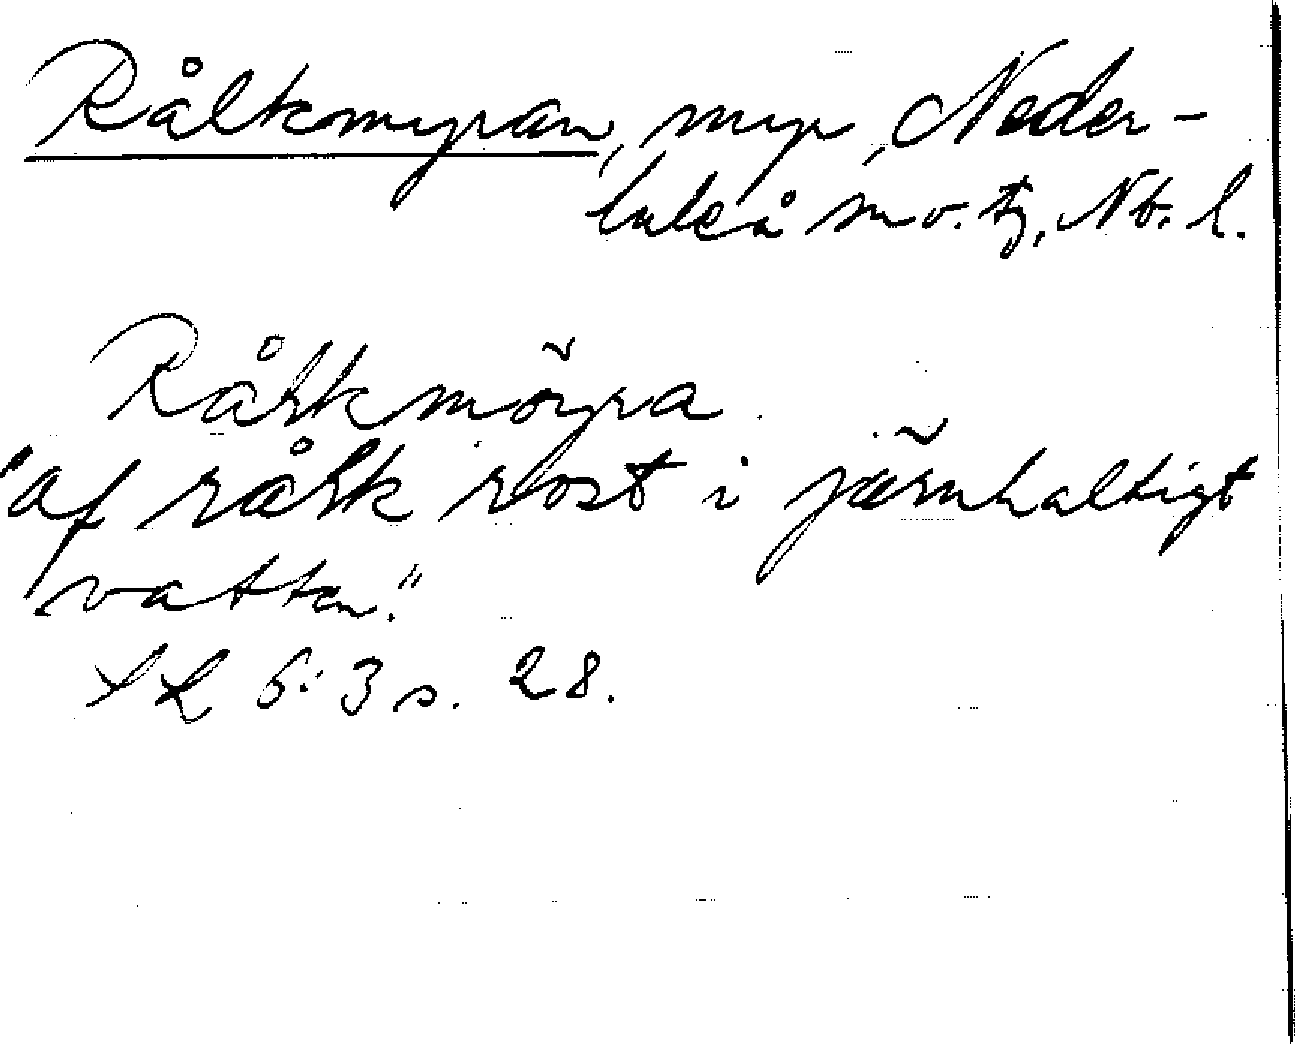 Rålkmyran, myr, Neder-
luleå sn o. tg, Nb. l.
Råłkmöyra
"af råłk rost i järnhaltigt
vatten."
SL 6:3 s. 28.